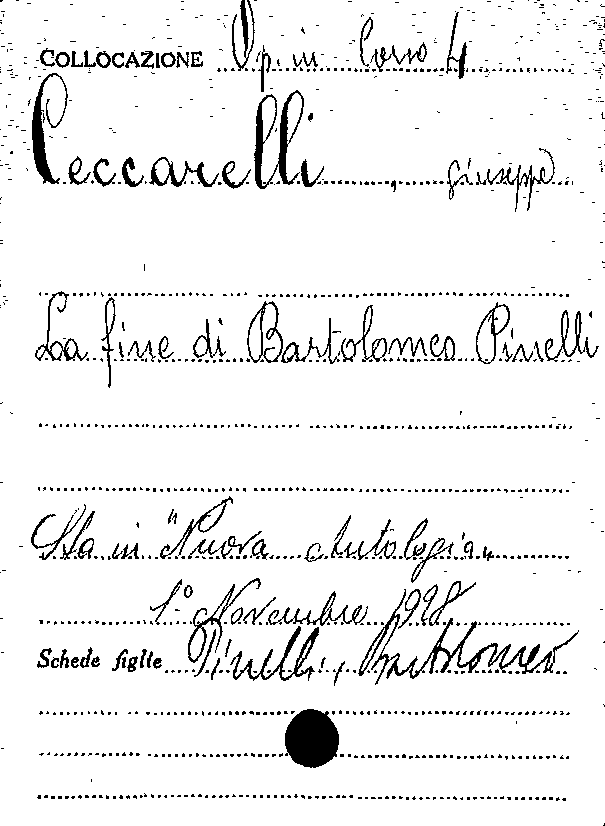 COLLOCAZIONE Op. in Corso 4
Ceccarelli, Giuseppe
La fine di Bartolomeo Pinelli
Sta in "Nuova Antologia"
1° Novembre 1928
Schede figlie Pinelli, Bartolomeo